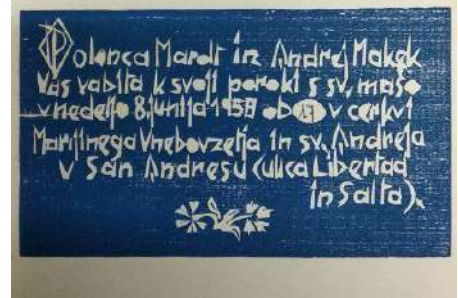 Polonca Marolt in Andrej Makek
Vas vabita k svoji poroki s sv. mašo
v nedeljo 8. junija 1958 ob v cerkvi
Marijinega Vnebovzetja in sv. Andreja
v San Andresu (ulica Libertad
in Salta).